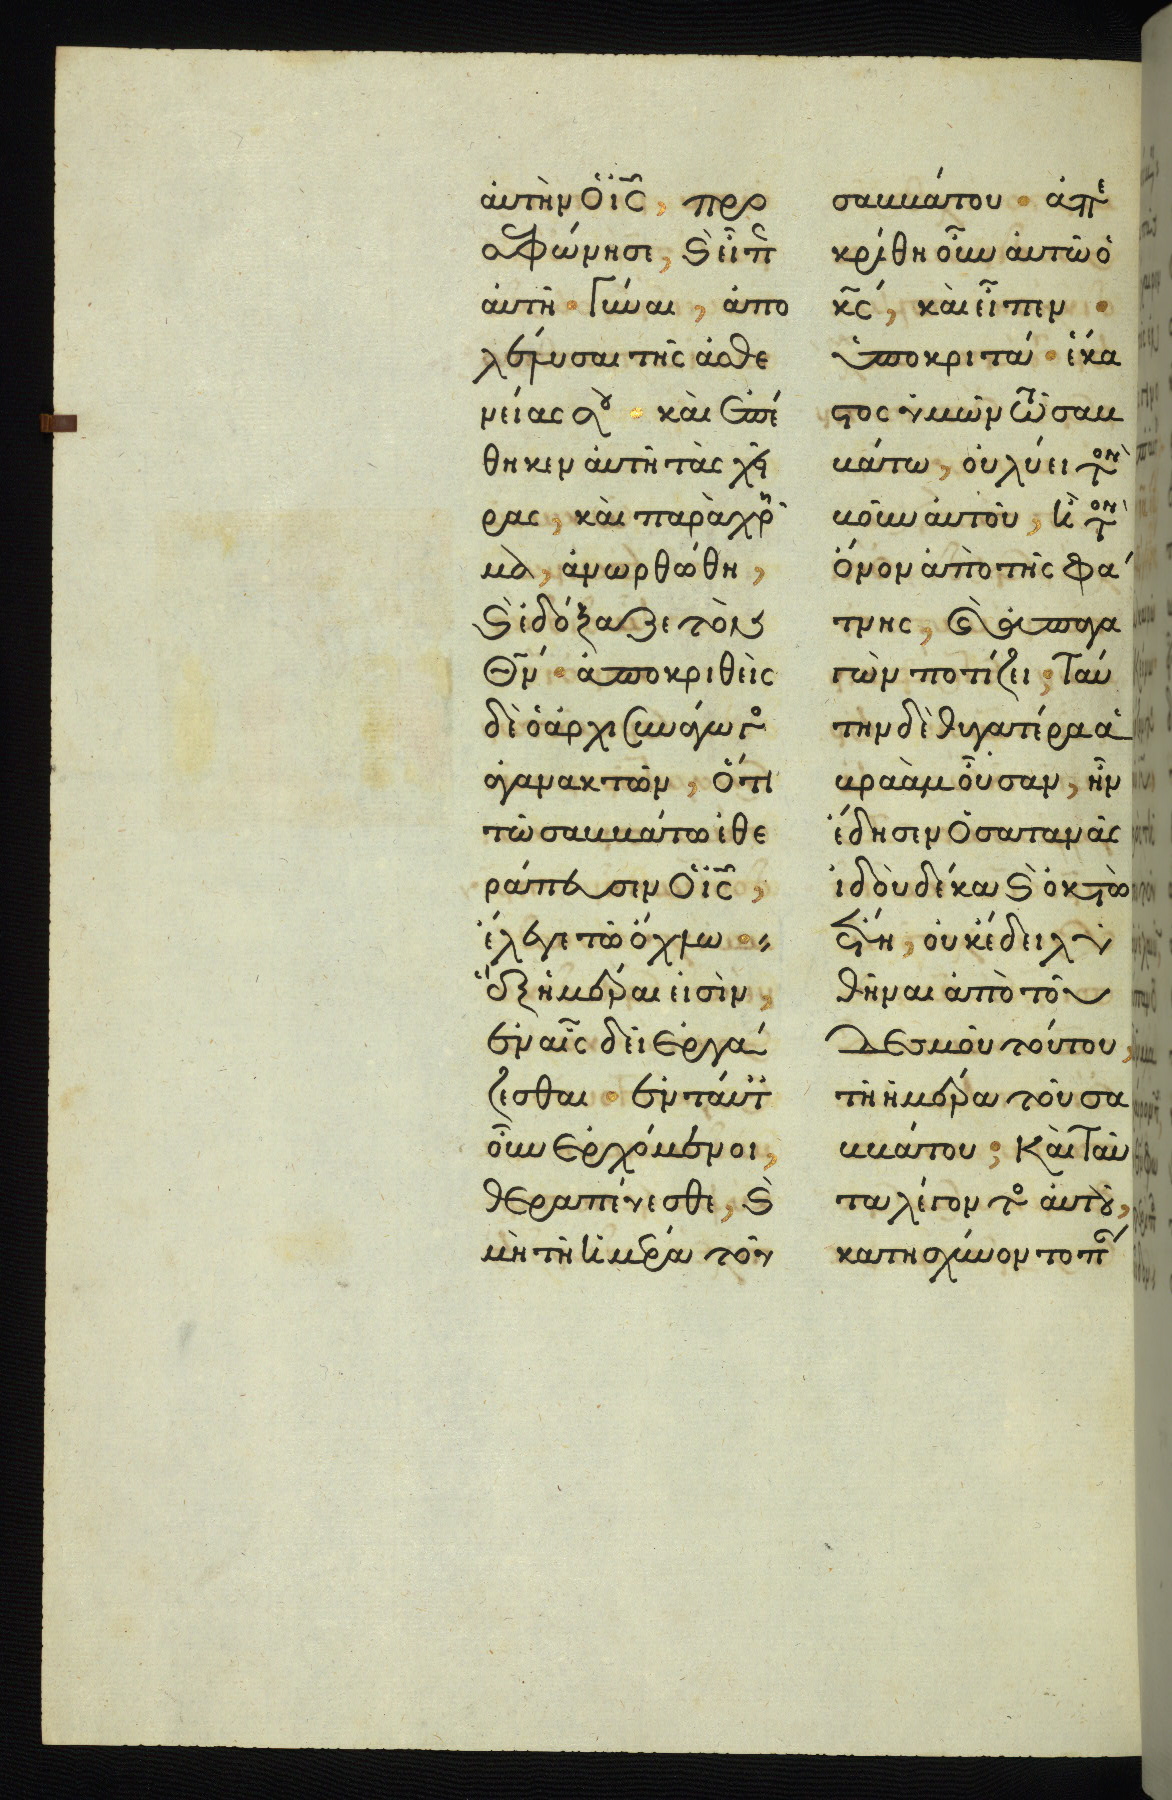 ἀυτὴν ὁ ι̅ς̅, προ
σεφώνησε, ϗ εἶπ
ἀυτῆ · Γύναι, ἀπο
λέλυσαι τῆς ἀσθε
νείας σου · καὶ ἐπέ
θηκεν ἀυτῆ τὰς χεῖ
ρας, καὶ παρὰχρῆ
μα, ἀνωρθώθη,
ϗ ἐδόξαζε τὸν
Θ̅ν̅ · ἀποκριθεὶς
δὲ ὁ ἀρχισυνάγωγο
ἀγανακτῶν, ὅτι
τῶ σαββάτω ἐθε
ράπευσεν ὁ ι̅ς̅,
ἔλεγε τῶ ὄχλω ·
ἓξ ἡμέραι εἰσὶν,
ἐν αἷς δεῖ ἐργά
ζεσθαι · ἐν ταύτ
οὖν ἐρχόμενοι,
θεραπέυεσθε, ϗ
μὴ τῆ ἡμέρα τοῦ
σαββάτου · ἀπε
κρίθη οὖν ἀυτῶ ὁ
κ̅ς̅, καὶ εἶπεν ·
ὑποκριτά · ἕκα
στος ὑμῶν τῶ σαβ
βάτω, οὐ λύει τὸν
βοῦν ἀυτοῦ, ἢ τὸν
ὄνον ἀπὸ τῆς φά
τνης, καὶ ἀπαγα
γὼν ποτίζει; Ταύ
την δὲ θυγατέρα ἀ
βραὰμ οὖσαν, ἣν
ἔδησεν ὁ σατανᾶς
ἰδοὺ δέκα ϗ ὀκτὼ
ἔτη, οὐκ ἔδει λυ
θῆναι ἀπὸ τοῦ
δεσμοῦ τούτου,
τῆ ἡμέρα τοῦ σα
ββάτου; Καὶ ταῦ
τα λέγοντο ἀυτοῦ,
κατησχύνοντο π